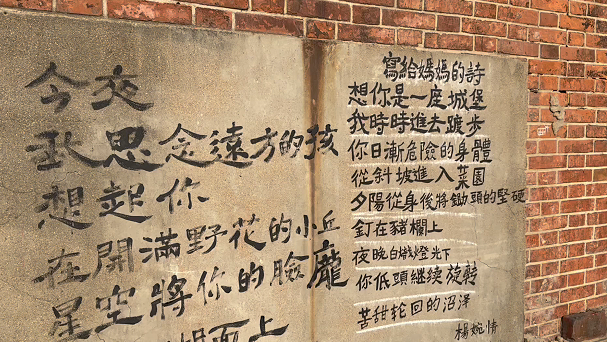 今夜
我思念遠方的孩
想起你
在開滿野花的小丘
星空將你的臉龐
面上
寫給媽媽的詩
想你是一座城堡
我時時進去踱步
你日漸危險的身體
從斜坡進入菜園
夕陽從身後將鋤頭的堅硬
釘在豬欄上
夜晚白熾燈光下
你低頭繼续旋转
苦甜轮回的沼澤
楊婉情